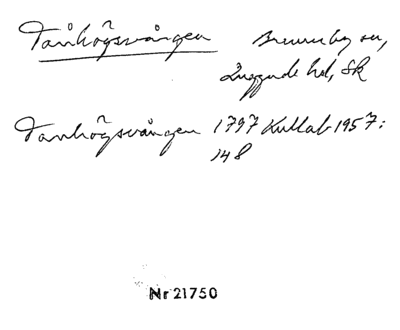 Tanhögsvången Brunnby sn,
Luggude hd, Sk
Tanhögsvången 1797 Kullab 1957:
148
Nr 21750